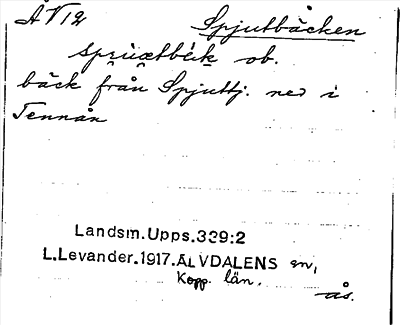 ÄV12 Spjutbäcken
ob.
bäck från Spjuttj. ned i
Tennån
Landsm.Upps.339:2
L.Levander.1917.ÄLVDALENS sn,
Kopp. län.
ås.